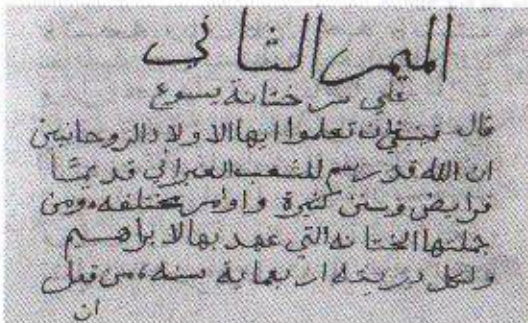 الميمر الثاني
علي سر ختانة يسوع
قال فينبغي ان تعلموا ايها الاولاد الروحانيين
ان الله قد رسم للشعب العبراني قديمًا
فرايض وسنن كثيرة واوامر مختلفه، ومن
جملتها الختانه التي عهد بها لابراهيم
ولكل دريته اربعماية سنه، من قبل
ان